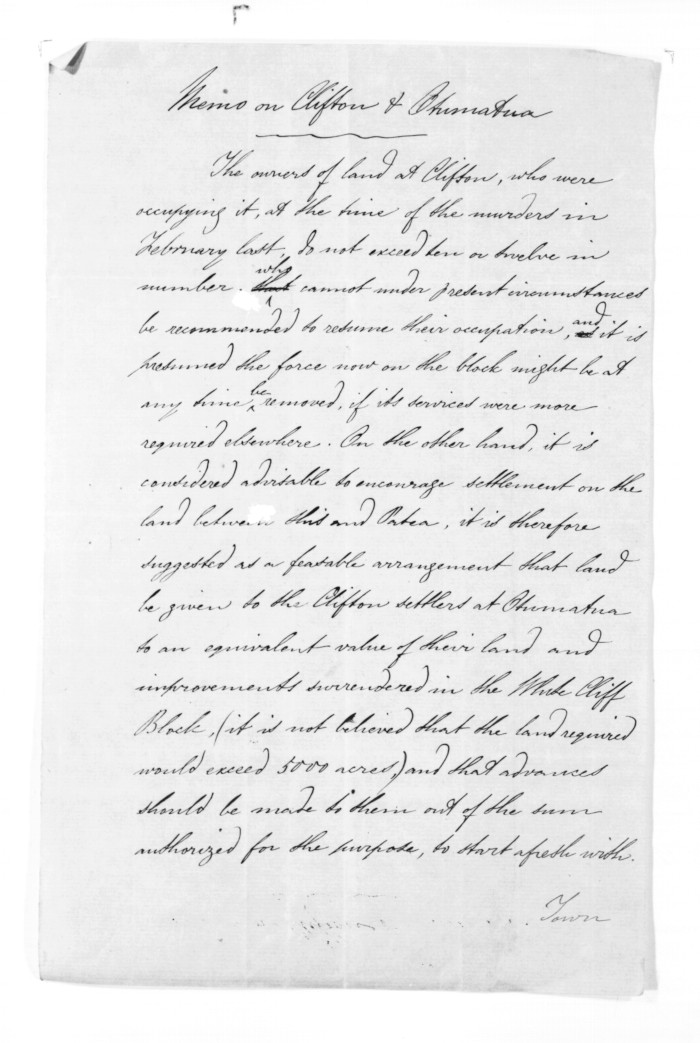 Memo on Clifton & Otumatua
The owners of land at Clifton, who were
occupying it, at the time of the murders in
February last, do not exceed ten or twelve in
number. ~~that~~ who cannot under present circumstances
be recommended to resume their occupation, ~~as~~ and it is
presumed the force now on the block might be at
any time be removed, if its services were more
required elsewhere. On the other hand, it is
considered advisable to encourage settlement on the
land between this and Patea, it is therefore
suggested as a feasable arrangement that land
be given to the Clifton settlers at Otumatua
to an equivalent value of their land and
improvements surrendered in the White Cliff
Block, (it is not believed that the land required
would exceed 5000 acres,) and that advances
should be made to them out of the sum
authorized for the purpose, to start afresh with.
Town